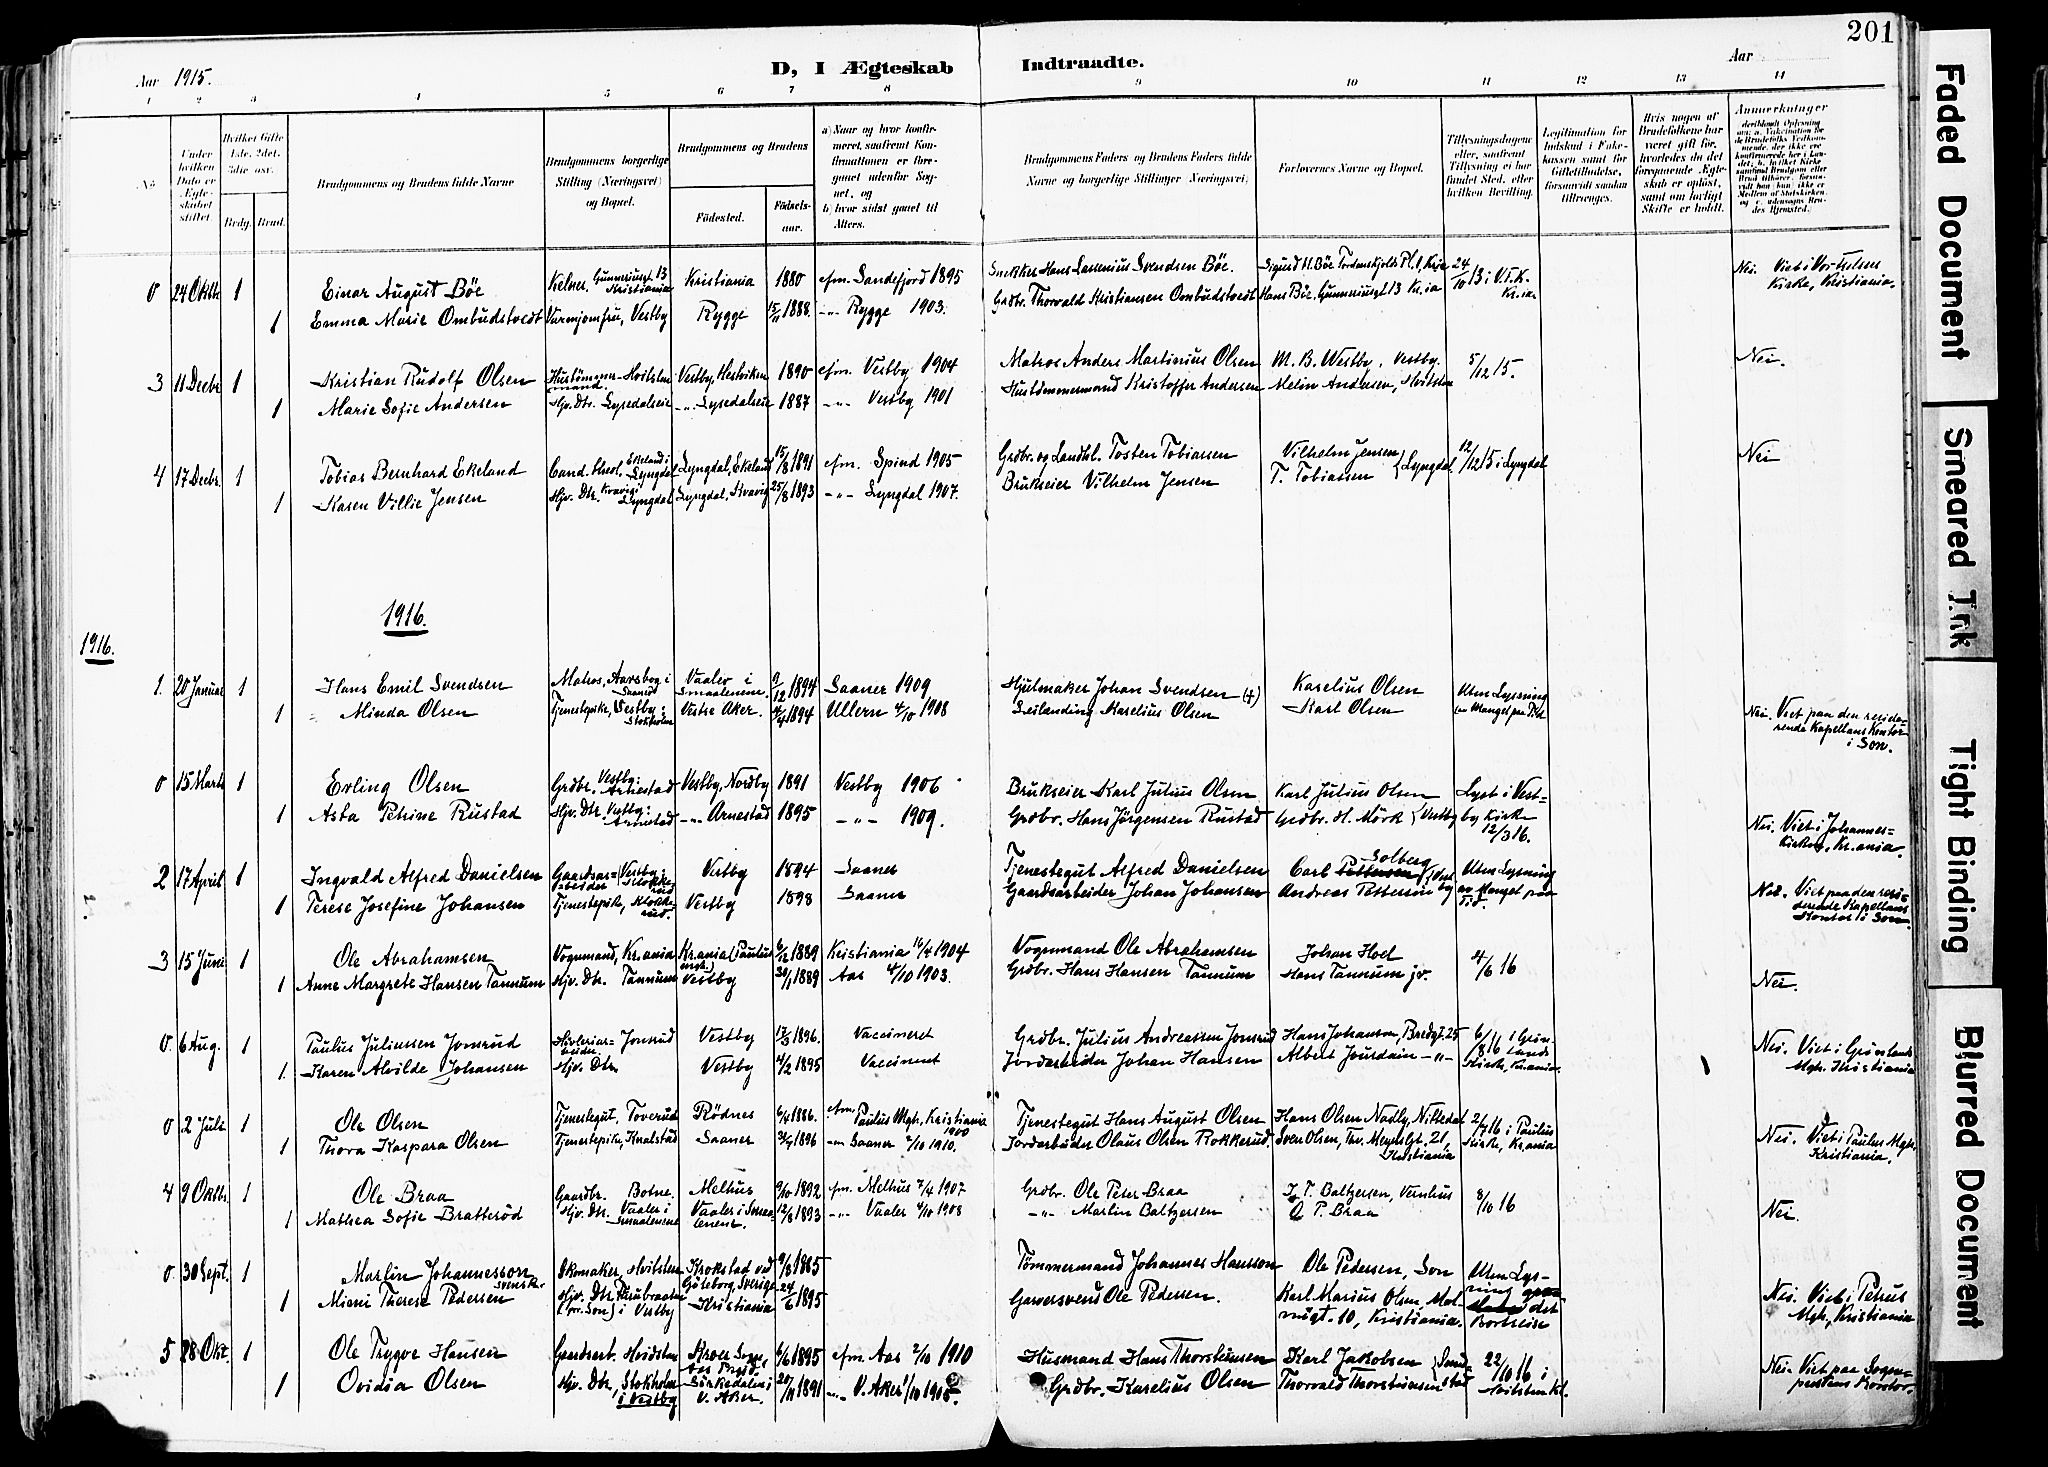 201
Aar 1915.
D, I Ægteskab Indtraadte.
Aar
1 2 3 4 5 6 7 8 9 10 11 12 13 14
No
Under hvilken Dato er Ægteskabet stiftet
Hvilket Gifte 1ste, 2det, 3die osv.
Brdg. Brud.
Brudgommens og Brudens fulde Navne
Brudgommens borgerlige Stilling (Næringsvei) og Bopæl.
Brudgommens og Brudens
Födested. Födselsaar.
a) Naar og hvor konfirmeret, saafremt Konfirmationen er foregaaet udenfor Sognet, og
b) hvor sidst gaaet til Alters.
Brudgommens Faders og Brudens Faders fulde Navne og borgerlige Stillinger (Næringsvei)
Forlovernes Navne og Bopæl.
Tillysningsdagene eller, saafremt Tillysning ei har fundet Sted, efter hvilken Bevilling.
Legitimation for Indskud i Enkekassen samt for Giftetilladelse, forsaavidt saadan tiltrænges.
Hvis nogen af Brudefolkene har været gift för, hvorledes da det foregaaende Ægteskab er oplöst, samt om lovligt Skifte er holdt.
Anmærkninger
0 24 Oktb 1 Einar August Böe Kelner. Gunneriusgt. 13 Kristiania Kristiania 1880 cfm. Sandefjord 1895 Snekker Hans Laurenius Svendsen Böe. Sigurd H. Böe Tordenskjolds Pl. 1, Kr.ia 24/10 13 i V.F.K. Kr.ia. Nei. Viet i Vor Frelsers Kirke, Kristiania.
1 Emma Marie Ombudstvedt Varmjomfru, Vestby Rygge 15/11 1888. -"- Rygge 1903. Grdbr. Thorvald Kristiansen Ombudstvedt Hans Böe, Gunneriusgt 13 Kr.ia
3 11 Decbr 1 Kristian Rudolf Olsen Hustömmermand Hvitsten Vestby, Hestviken 1890 cfm. Vestby 1904 Matros Anders Martinius Olsen M. B. Westby, Vestby. 5/12 15. Nei.
1 Marie Sofie Andersen Hjv. Dtr. Lysedalseie -"- Lysedalseie 1887 -"- Vestby 1901 Hustömmermand Kristoffer Andersen Melin Andersen, Hvitsten
4 17 Decbr. 1 Tobias Bernhard Ekeland Cand. theol. Ekeland i Lyngdal Lyngdal, Ekeland 15/8 1891 cfm. Spind 1905 Grdbr. og Landhl. Tosten Tobiassen Vilhelm Jensen Lyngdal 12/12 15 i Lyngdal Nei
1 Karen Villie Jensen Hjv. Dtr. Kvavig i Lyngdal Lyngdal, Kvavig 25/8 1893 -"- Lyngdal 1907. Brukseier Vilhelm Jensen T. Tobiassen
1916.
1916.
1. 20 Januar 1 Hans Emil Svendsen Matros, Aarsbog i Saaner Vaaler i Smaalenene. 9/12 1894 Saaner 1909 Hjulmaker Johan Svendsen (+) Karelius Olsen Uten Lysning av Mangel paa Tid
1 Minda Olsen Tjenestepike, Vestby: Stokholm Vestre Aker. 4/4 1894 Ullern 4/10 1908 Leilending Karelius Olsen Karl Olsen Nei. Viet paa den residerende Kapellans Kontor i Son.
0 15 Marts 1 Erling Olsen Grdbr. Vestby: Arnestad Vestby, Nordby 1891 Vestby 1906 Brukseier Karl Julius Olsen Karl Julius Olsen Lyst i Vestby Kirke 12/3 16.
1 Asta Petrine Rustad Hjv. Dtr. Vestby: Arnestad -"- Arnestad 1895 -"- 1909. Grdbr. Hans Jörgensen Rustad Grdbr. H. Mörk Vestby Nei. Viet i Johannes-Kirken, Kr.ania.
2 17 April 1 Ingvald Alfred Danielsen Gaardsarbeider Vestby: Klokkerud Vestby 1894 Saaner Tjenestegut Alfred Danielsen Carl Pettersen Solberg Vestby Uten Lysning av Mangel paa Tid.
1 Terese Josefine Johansen Tjenestepik, Klokkerud. Vestby 1898 Saaner Gaardsarbeider Johan Johansen Andreas Pettersen Nei. Viet paa den residerende Kapellans Kontor i Son.
3 15 Juni 1 Ole Abrahamsen Vognmand, Kr.ania Kr.ania (Paulus msk.) 6/12 1889 Kristiania 16/4 1904 Vognmand Ole Abrahamsen Johan Hoel 4/6 16
1 Anne Margrete Hansen Tannum Hjv. Dtr. Tannum Vestby 30/1 1889 Aas 4/10 1903. Grdbr. Hans Hansen Tannum Hans Tannum jr. Nei.
0. 6 Aug. 1 Paulus Juliussen Jonsrud Jonsrud Vestby 17/3 1896. Vaccineret Grdbr. Julius Andreassen Jonsrud Hans Johansen, Bredgt. 25 6/8 16 i Grönlands Kirke, Kr.ania. Nei. Viet i Grönlands Mgh. Kristiania
1. Karen Alvilde Johansen Hjv. Dtr. Vestby 4/2 1895 Vaccineret Jordarbeider Johan Hansen Albert Jourdain -"-
0 2 Juli 1 Ole Olsen Tjenestegut, Toverud Rödnes 6/4 1886. cfm. Paulus Mgh, Kristiania 1900 Tjenestegut Hans August Olsen Hans Olsen Nadly, Nittedal 2/7 16 i Paulus Kirke, Kr.ania
1 Thora Kaspara Olsen Tjenestepike, Knalstad Saaner 3/9 1896 -"- Saaner 2/10 1910. Jordarbeider Olaus Olsen Rokkerud. Sven Olsen, Thv. Meyers Gt. 21, Kristiania Nei. Viet i Paulus Mgh. Kristiania.
4 9 Oktbr. 1 Ole Braa Gaardbr. Botne. Melhus 9/10 1892 cfm. Melhus 7/4 1907 Grdbr. Ole Peter Braa J. P. Baltzersen, Vernhus 8/10 16
1 Mathea Sofie Bratteröd Hjv. Dtr. Vaaler i Smaalenene Vaaler i Smaalenene. 12/8 1893 -"- Vaaler 4/10 1908 -"- Martin Baltzersen O. P. Braa Nei.
0. 30 Sept. 1 Martin Johannesson svensk. Skomaker, Hvitsten Krokstad ved Göteborg, Sverige 9/3 1885 Tömmermand Johannes Hansson Ole Pedersen, Son Uten Lysning det Bortreise
1 Mieni Therese Pedersen Hjv. Dtr. (pr. Son) i Vestby Kristiania 24/6 1895 Garversvend Ole Pedersen. Karl Marius Olsen, 10, Kristiania. Nei. Viet i Petrus Mgh, Kristiania
5 28 Okt. 1 Ole Trygve Hansen Gaardsarb. Hvidsten Kroer Sogn, Aas Prgjd. 6/6 1895 cfm. Aas 2/10 1910 Husmand Hans Thorstensen Karl Jakobsen 22/10 16 i Hvitsten kl.
1 Ovidia Olsen Hjv. Dtr, Stokholm i Vestby Sörkedalen i V. Aker. 20/11 1891 -"- V. Aker 1/10 1905. Grdbr. Karelius Olsen Thorvald Thorstensen Nei. Viet paa Sogneprestens Kontor.
Faded Document
Smeared Ink
Tight Binding
Blurred Document